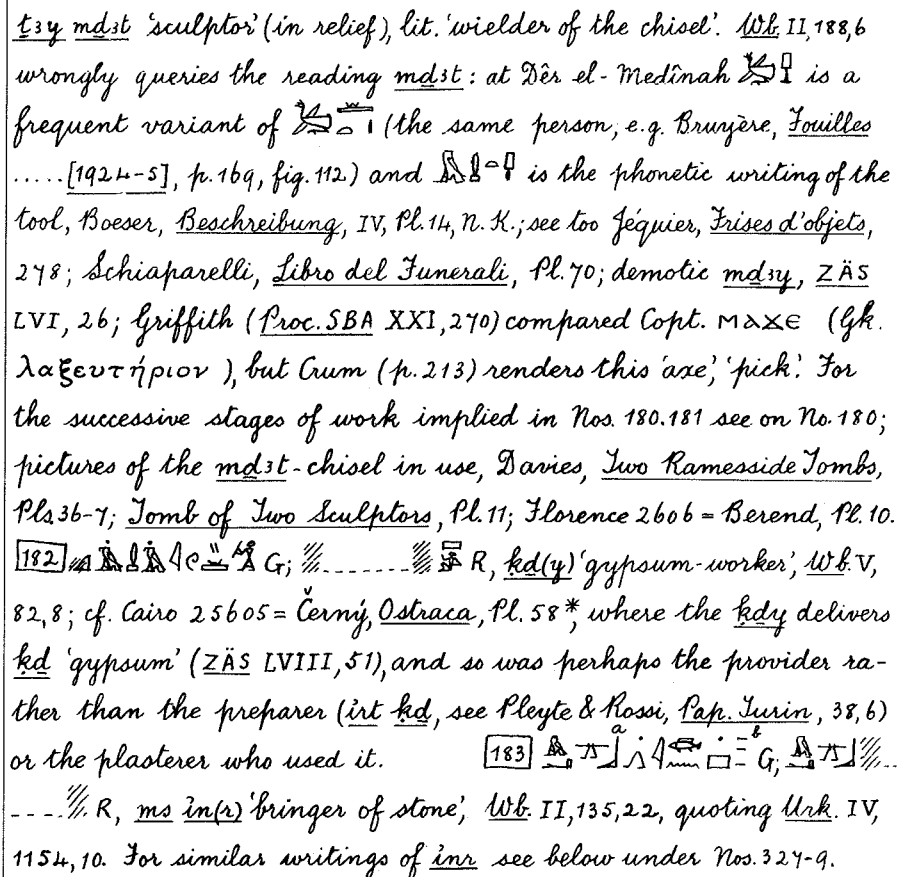 ṯꜣy mḏꜣt 'sculptor' (in relief), lit. 'wielder of the chisel'. Wb. II, 188,6
wrongly queries the reading mḏꜣt: at Dêr el-Medînah is a
frequent variant of (the same person, e.g. Bruyère, Fouilles
.....[1924-5], p. 169, fig. 112) and is the phonetic writing of the
tool, Boeser, Beschreibung, IV, Pl. 14, N.K.; see too Jéquier, Frises d'objets,
278; Schiaparelli, Libro del Funerali, Pl. 70; demotic mḏꜣy, ZÄS
LVI, 26; Griffith (Proc. SBA XXI, 270) compared Copt. ⲙⲁϫⲉ (Gk.
λαξευτήριον), but Crum (p. 213) renders this 'axe', 'pick'. For
the successive stages of work implied in Nos. 180.181 see on No. 180;
pictures of the mḏꜣt-chisel in use, Davies, Two Ramesside Tombs,
Pls. 36-7; Tomb of Two Sculptors, Pl. 11; Florence 2606 = Berend, Pl. 10.
182 G; R, ḳḏ(y) 'gypsum-worker', Wb. V,
82,8; cf. Cairo 25605 = Černý, Ostraca, Pl. 58*, where the ḳḏy delivers
ḳḏ 'gypsum' (ZÄS LVIII, 51), and so was perhaps the provider ra-
ther than the preparer (irt ḳḏ, see Pleyte & Rossi, Pap. Turin, 38,6)
or the plasterer who used it. 183 a b G;
R, ms in(r) 'bringer of stone', Wb. II, 135,22, quoting Urk. IV,
1154,10. For similar writings of inr see below under Nos. 327-9.